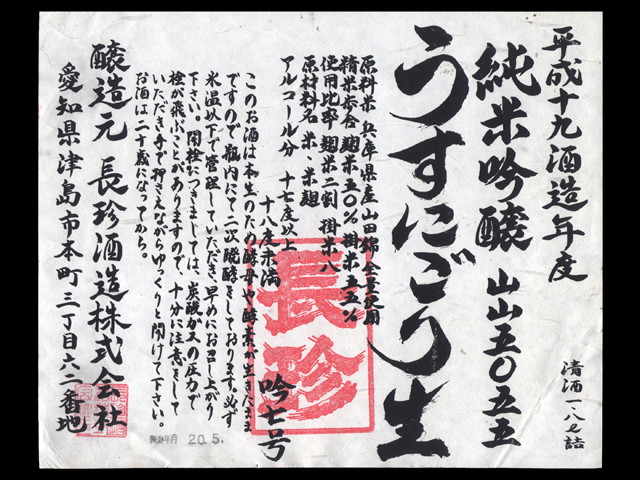 平成十九酒造年度
純米吟醸 山山五〇五五
清酒一八ℓ詰
うすにごり生
原料米 兵庫県産山田錦全量使用
精米歩合 麹米五〇% 掛米五五%
使用比率 麹米二割 掛米八
原材料名 米、米麹
アルコール分 十七度以上
十八度未満
吟七号
長珍
このお酒は本生のため酵母や酵素が生きたまま
ですので瓶内にて二次醗酵をしております。必ず
氷温以下で管理していただき、早めにお召し上がり
下さい。開栓につきましては、炭酸ガスの圧力で
栓が飛ぶことがありますので、十分に注意をして
いただき手で押さえながらゆっくりと開けて下さい。
お酒は二十歳になってから。
製造年月 20.5.
醸造元 長珍酒造株式会社
愛知県津島市本町三丁目六二番地